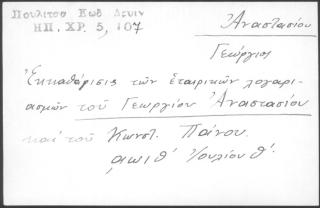 Πουλίτσα Κωδ Δεμιν
ΗΠ. ΧΡ. 5, 107
Ἀναστασίου
Γεώργιος
Ἐκκαθάρισις τῶν ἑταιρικῶν λογαρι-
ασμῶν τοῦ Γεωργίου Ἀναστασίου
καί τοῦ Κωνστ. Πάνου.
αωιθ΄ Ἰουλίου θ΄.